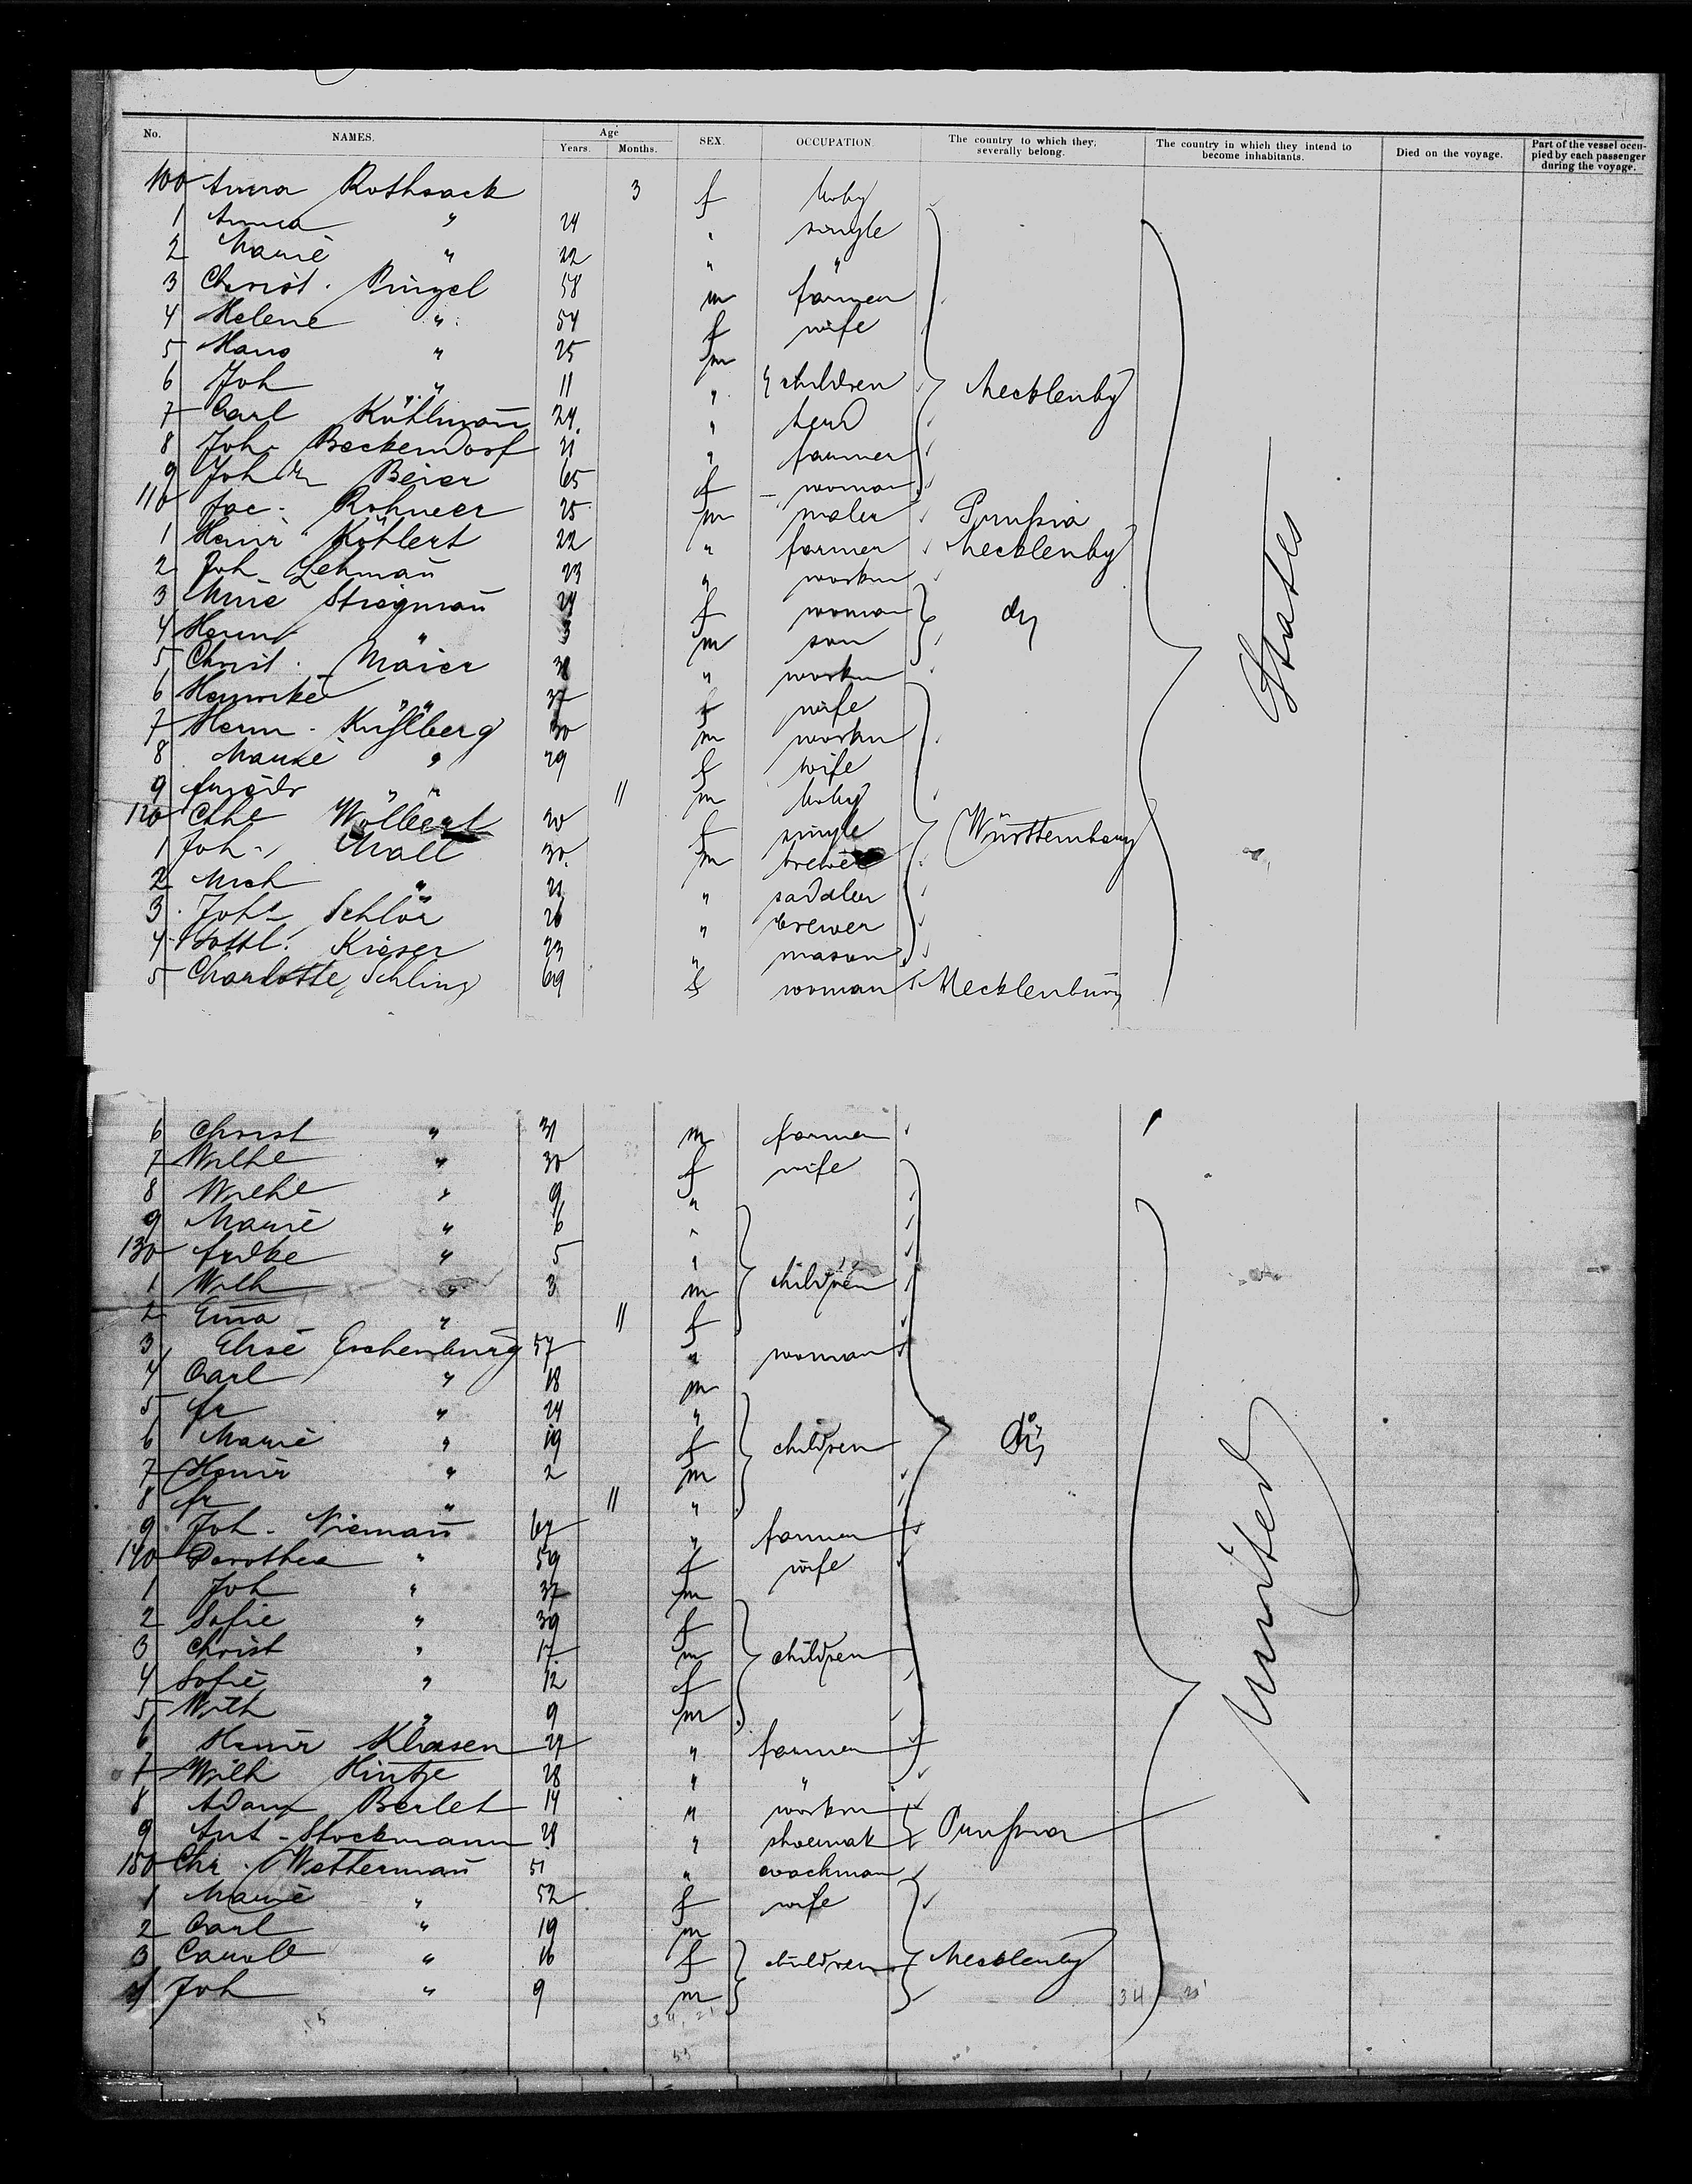 No. NAMES. Age Years. Months. SEX. OCCUPATION. The country to which they severally belong. The country in which they intend to become inhabitants. Died on the voyage. Part of the vessel occupied by each passenger during the voyage.
100 Anna Rothsack 3 f baby
1 Anna " 24 " single
2 Marie " 22 " "
3 Christ. Pingel 58 m farmer
4 Helene " 54 f wife
5 Hans " 25 m
6 Joh " 11 " children Mecklenbg
7 Carl Kühlmañ 24 "
8 Joh. Beckendorf 21 " farmer
9 Joh Beier 65 f woman
110 Jac. Rohneer 25 m maler Prussia
1 Heinr Köhlert 22 " farmer Mecklenbg
2 Joh Lehmañ 23 " workm
3 Mine Stregmañ 24 f woman do
4 Herm " 3 m son
5 Christ. Maier 38 " workm
6 Henrike " 37 f wife
7 Herm. Kuhlberg 30 m workm
8 Marie " 29 f wife
9 " 11 m baby
120 Cthe Wölbert 20 f single Württemberg
1 Joh. Mall 30 m brewer
2 Mich " 21 " saddler
3 Johs Schlör 26 " brewer
4 Gottl. Kieser 23 " mason
5 Charlotte Schling 69 f woman Mecklenburg
States
6 Christ " 31 m farmer
7 Wilhe " 30 f wife
8 Wilhe " 9 "
9 Marie " 6 "
130 Fridke " 5 "
1 Wilh " 3 m children
2 Em̃a " 11 f
3 Elise Eschenburg 57 " woman
4 Carl " 18 m
5 Fr " 24 "
6 Marie " 19 f children do
7 Heinr " 2 m
8 Fr " 11 "
9 Joh. Niemañ 67 " farmer
140 Dorothea " 59 f wife
1 Joh " 37 m
2 Sofie " 39 f
3 Christ " 17 m children
4 Sofie " 12 f
5 Wilh " 9 m
6 Heinr Klasen 27 " farmer
7 Wilh Hintze 28 " "
8 Adam Berlet 14 " workm
9 Ant. Stockmann 28 " shoemak Prussia
150 Chr. Wettermañ 51 "
1 Marie " 52 f wife
2 Carl " 19 m
3 Carole " 16 f children Mecklenbg
4 Joh " 9 m
United
34 21
55